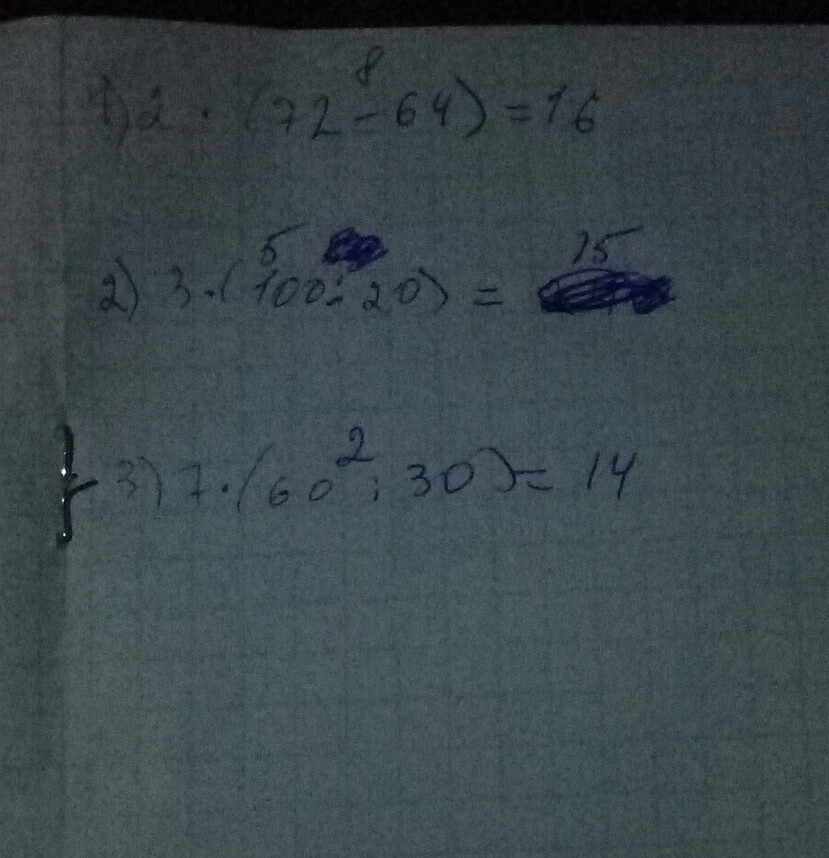 8
1) 2 · (72 - 64) = 16
5 15
2) 3 · (100 : 20) =
2
3) 7 · (60 : 30) = 14